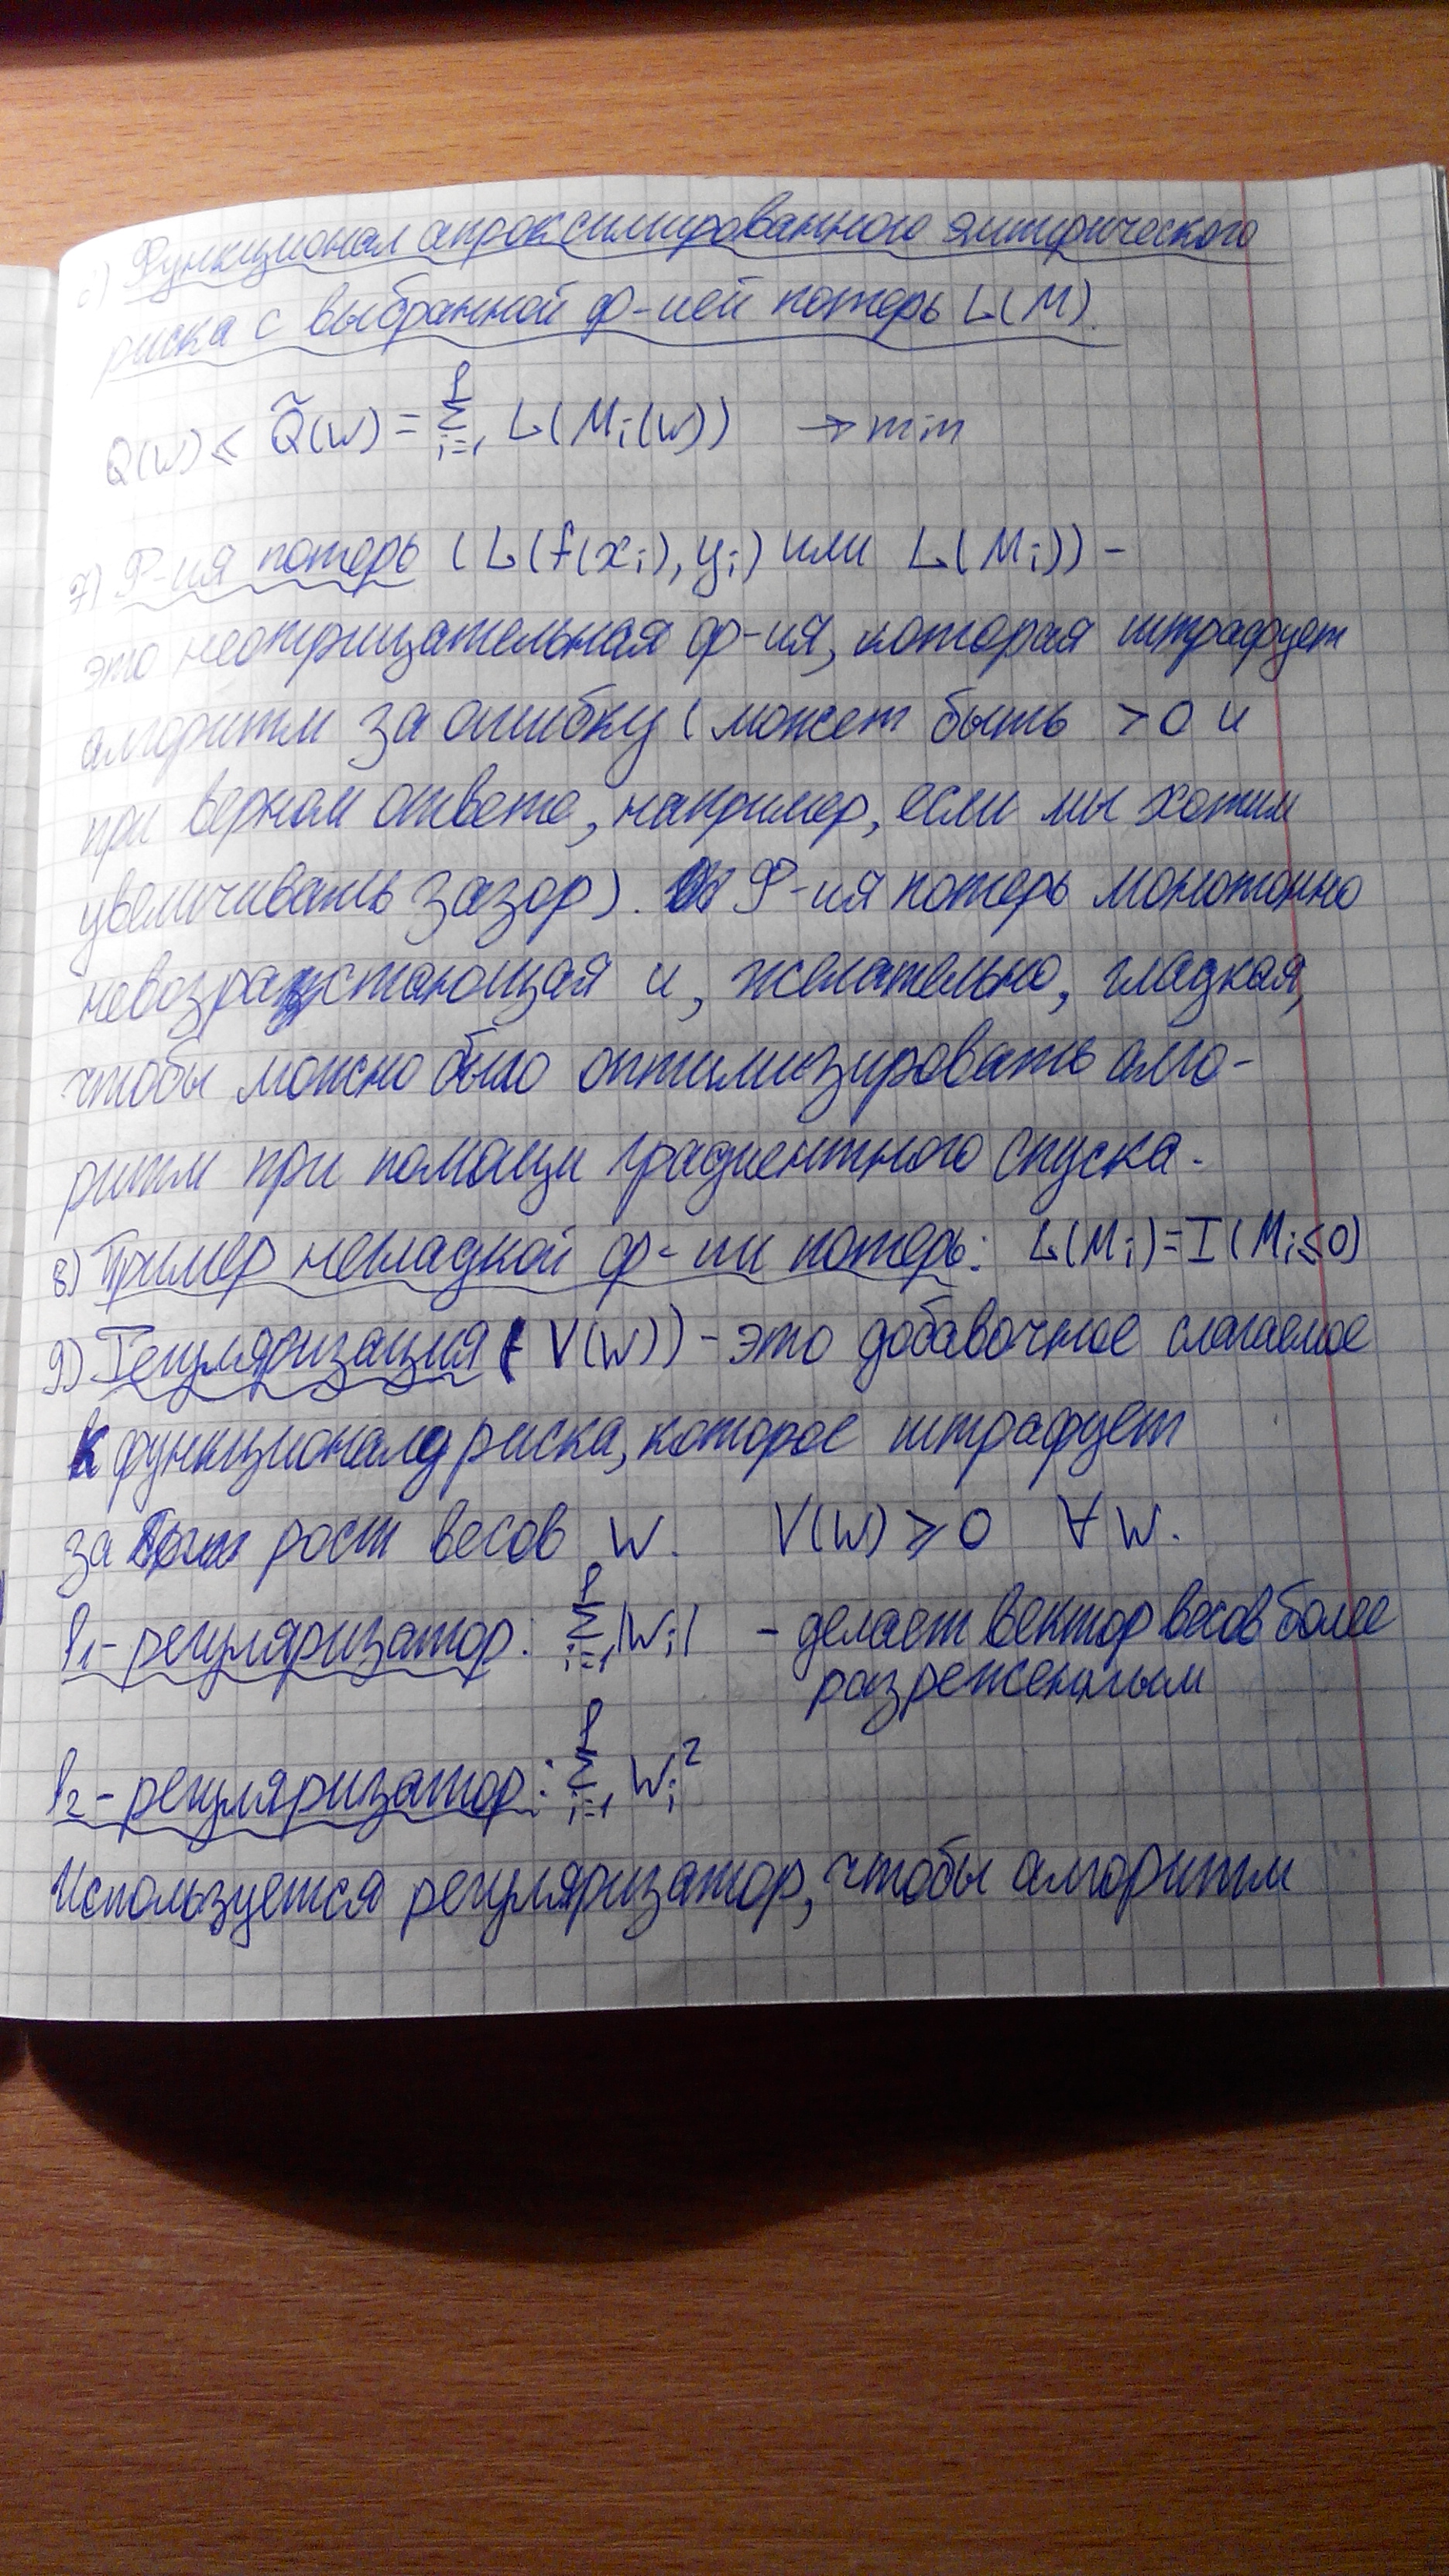 6) Функционал апроксимированного эмпирического
риска с выбранной ф-ией потерь L(M).
Q(w) ≤ Q̃(w) = Σ_{i=1}^{l} L(M_i(w)) → min
7) Ф-ия потерь (L(f(x_i), y_i) или L(M_i)) -
это неотрицательная ф-ия, которая штрафует
алгоритм за ошибку (может быть >0 и
при верном ответе, например, если мы хотим
увеличивать зазор). Ф-ия потерь монотонно
невозрастающая и, желательно, гладкая,
чтобы можно было оптимизировать алго-
ритм при помощи градиентного спуска.
8) Пример негладкой ф-ии потерь: L(M_i)=I(M_i≤0)
9) Регуляризация (V(w)) - это добавочное слагаемое
к функционалу риска, которое штрафует
за рост весов w. V(w) ≥ 0 ∀ w.
l_1-регуляризатор: Σ_{i=1}^{l} |w_i| - делает вектор весов более
разреженным
l_2-регуляризатор: Σ_{i=1}^{l} w_i^2
Используется регуляризатор, чтобы алгоритм